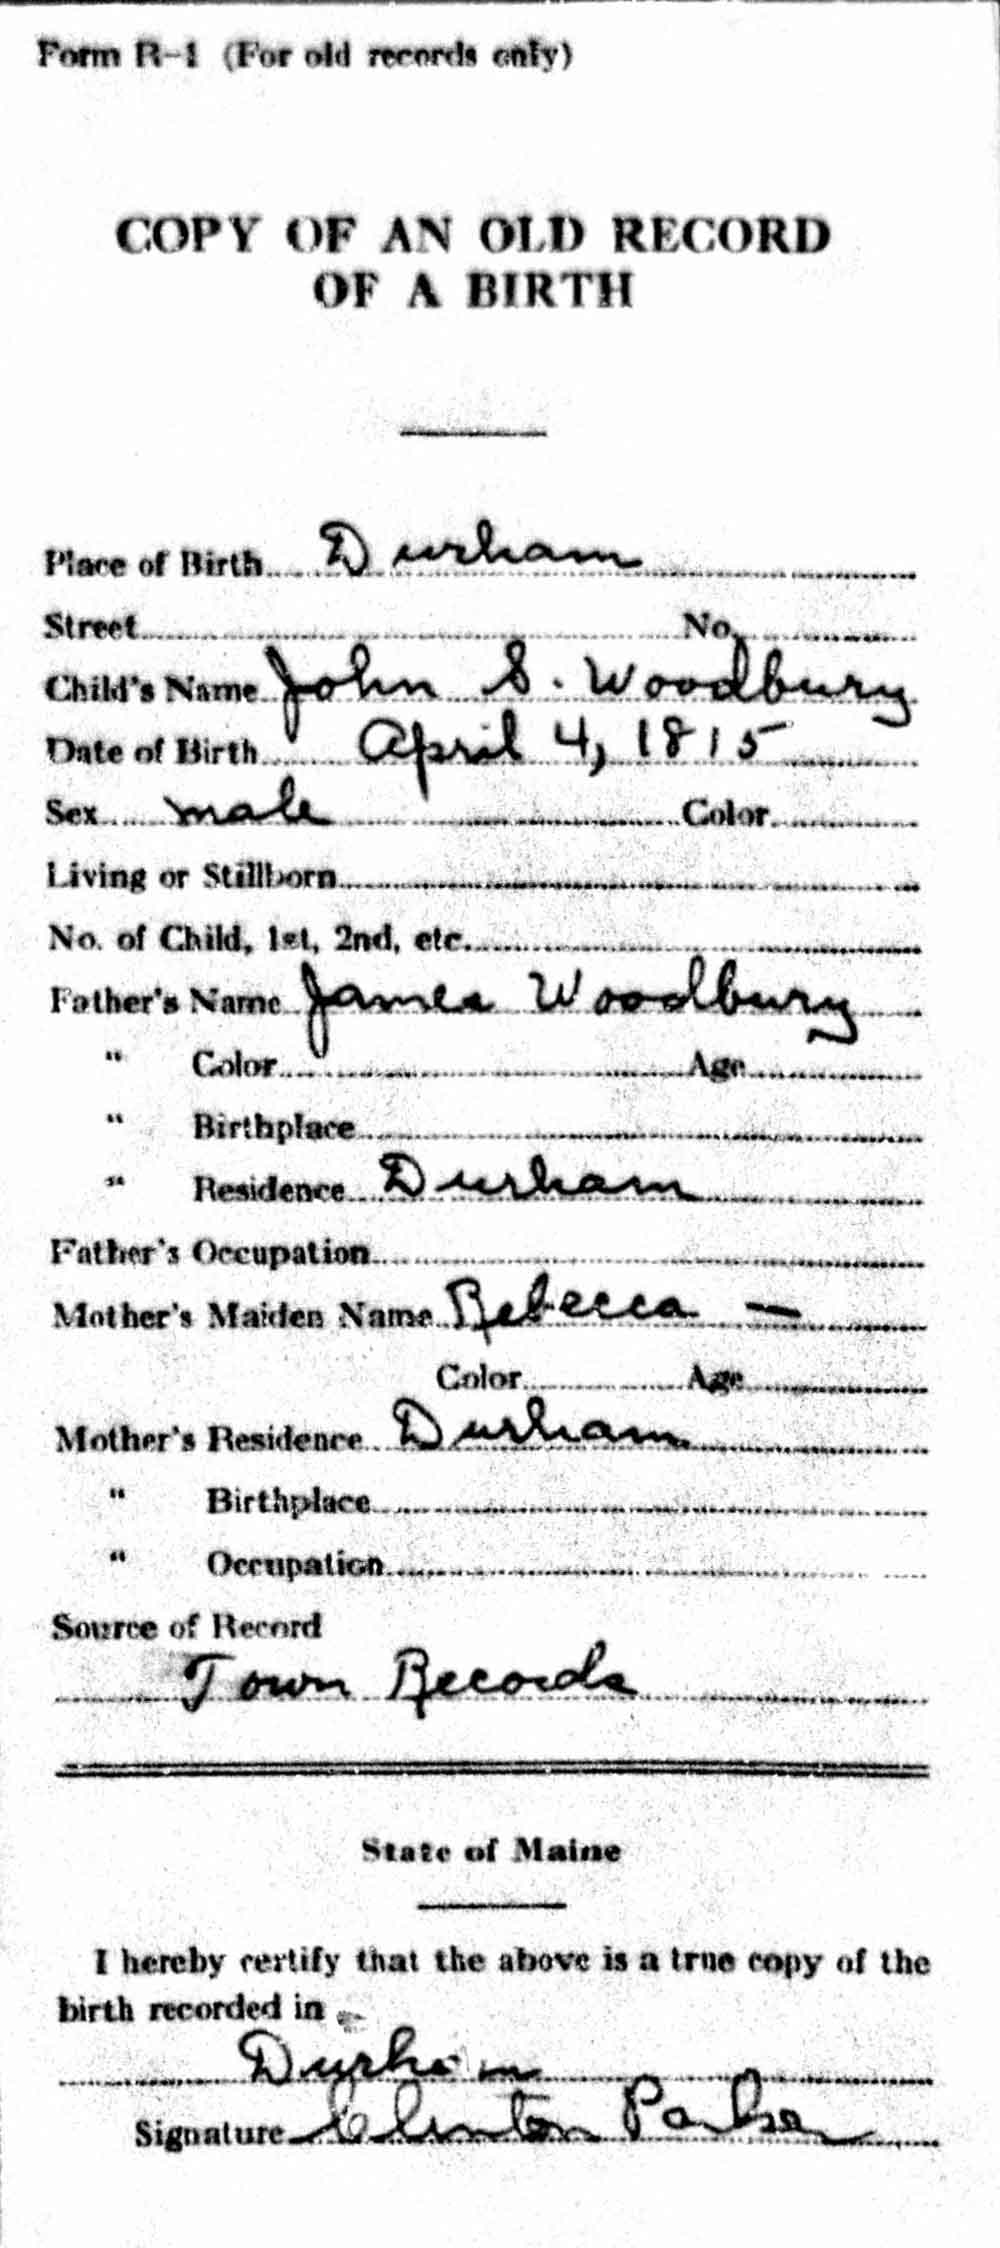 Form R-1 (For old records only)
COPY OF AN OLD RECORD
OF A BIRTH
Place of Birth Durham
Street No.
Child's Name John S. Woodbury
Date of Birth April 4, 1815
Sex male Color
Living or Stillborn
No. of Child, 1st, 2nd, etc.
Father's Name James Woodbury
" Color Age
" Birthplace
" Residence Durham
Father's Occupation
Mother's Maiden Name Rebecca —
Color Age
Mother's Residence Durham
" Birthplace
" Occupation
Source of Record
Town Records
State of Maine
I hereby certify that the above is a true copy of the
birth recorded in
Durham
Signature Clinton Parker